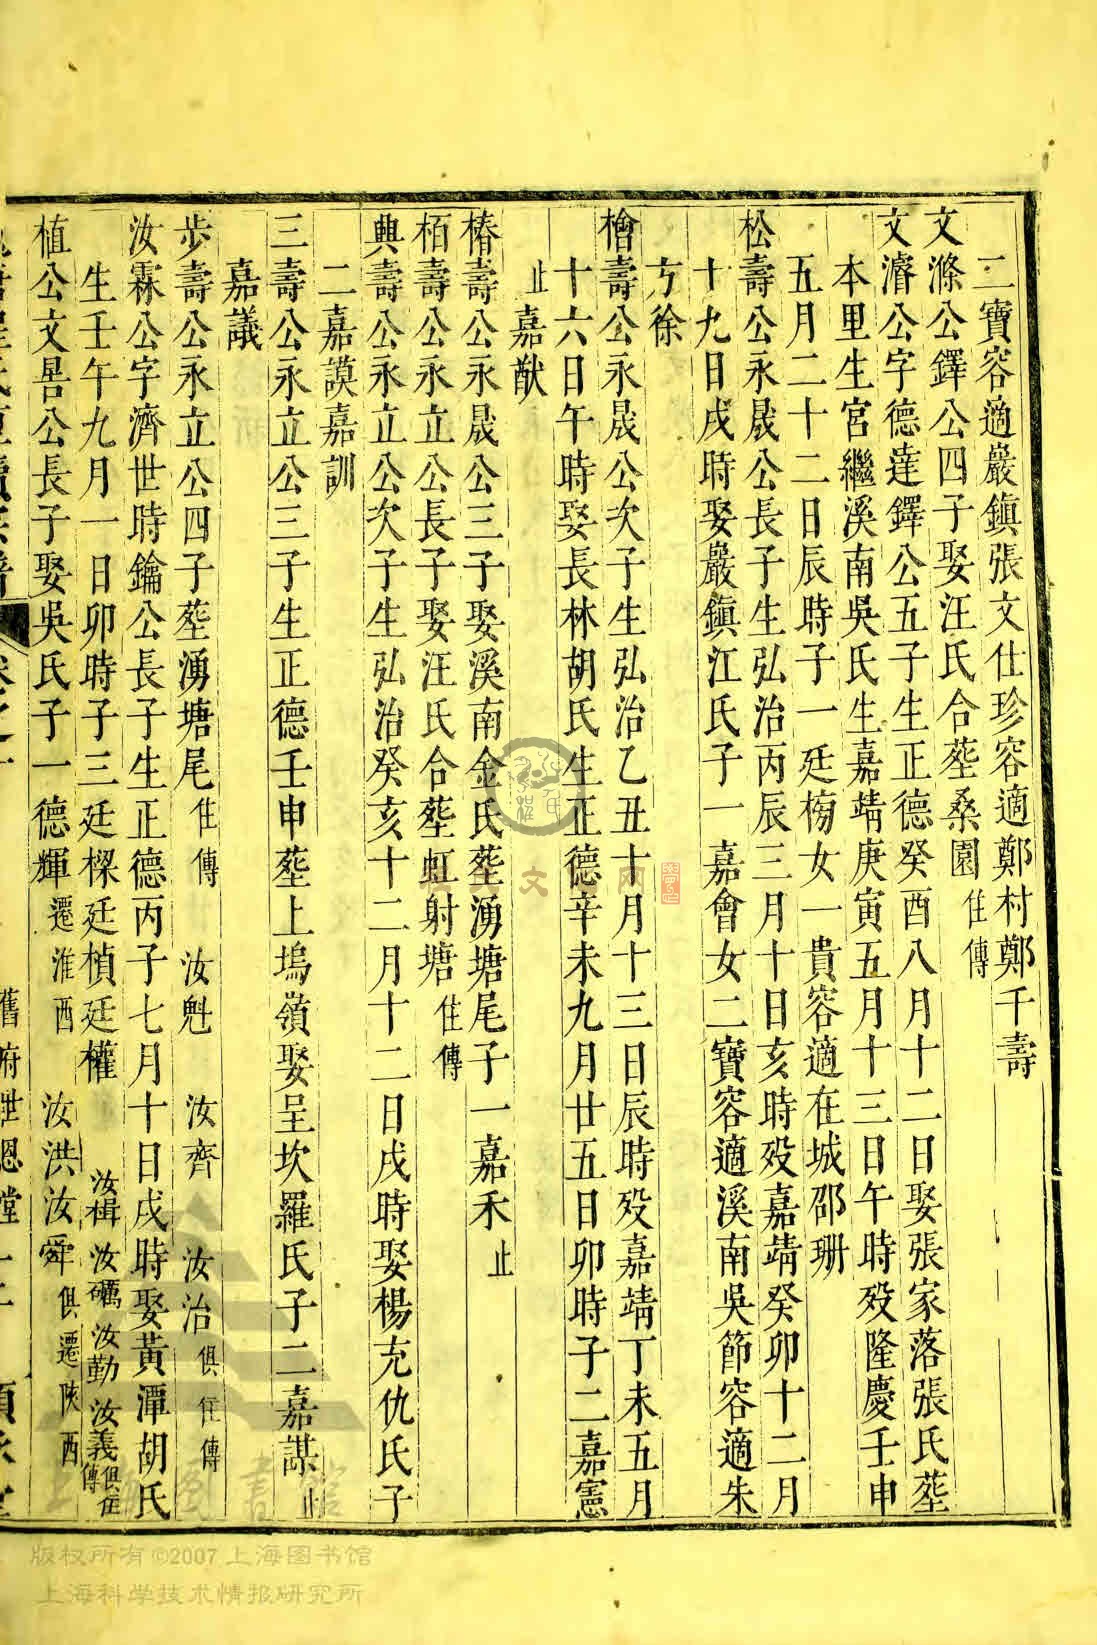 二寶容適巖鎮張文仕珍容適鄭村鄭千壽
文滌公鐸公四子娶汪氏合塟桑園住傳
文濬公字德達鐸公五子生正德癸酉八月十二日娶張家落張氏塟
本里生宮繼溪南吳氏生嘉靖庚寅五月十三日午時歿隆慶壬申
五月二十二日辰時子一廷㮄女一貴容適在城邵珊
松壽公永晟公長子生弘治丙辰三月十日亥時歿嘉靖癸卯十二月
十九日戌時娶巖鎮江氏子一嘉會女二寶容適溪南吳節容適朱
方徐
檜壽公永晟公次子生弘治乙丑十月十三日辰時歿嘉靖丁未五月
十六日午時娶長林胡氏生正德辛未九月廿五日卯時子二嘉憲
止嘉猷
椿壽公永晟公三子娶溪南金氏塟湧塘尾子一嘉禾止
栢壽公永立公長子娶汪氏合塟虹射塘住傳
典壽公永立公次子生弘治癸亥十二月十二日戌時娶楊充仇氏子
二嘉謨嘉訓
三壽公永立公三子生正德壬申塟上塢嶺娶呈坎羅氏子二嘉謀止
嘉議
步壽公永立公四子塟湧塘尾住傳 汝魁 汝齊 汝治俱住傳
汝霖公字濟世時鑰公長子生正德丙子七月十日戌時娶黃潭胡氏
生壬午九月一日卯時子三廷樑廷楨廷權 汝楫 汝礪 汝勤 汝義俱住傳
植公文㫺公長子娶吳氏子一德輝遷淮西 汝洪汝舜俱遷陝西
舊府世恩堂
上海图书馆
版权所有©2007上海图书馆
上海科学技术情报研究所